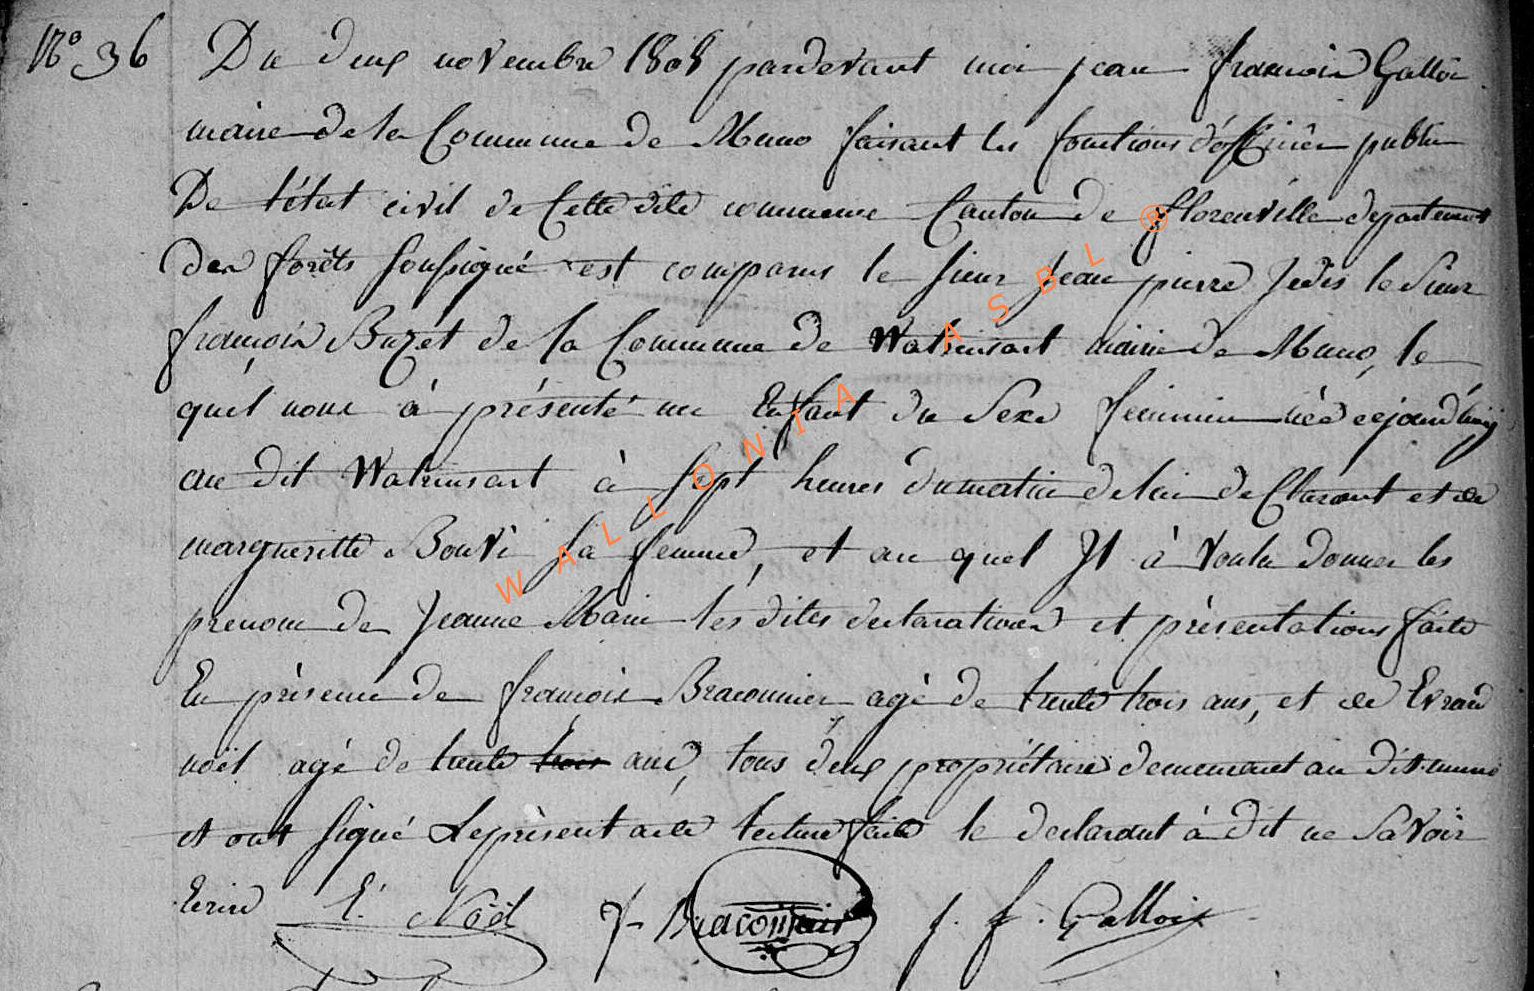 N° 36 Du deux novembre 1808 pardevant moi jean françois Gallois
maire de la Commune de Muno faisant les fonctions d'officier public
De l'état civil de Cette dite commune Canton de florenville departement
des forêts soussigné est comparus le sieur jean pierre Jedis le Sieur
françois Buzet de la Commune de Watrinsart mairie de Muno, le
quel nous à présenté un Enfant du Sexe feminin née cejourd'huij
au dit Watrinsart à sept heures du matin de lui declarant et de
margueritte Bouvi sa femme, et au quel Il à voulu donner les
prenom de Jeanne Marie les dites declarations et présentations faite
En présence de françois Braconnier agé de trente trois ans, et de Evrard
noël agé de trente trois ans, tous deux propriétaire demeurant au dit muno
et ont signé Leprésent acte lecture faite le declarant à dit ne Savoir
Ecrire E. Noël f Braconnier j. f. Gallois
WALLONIA ASBL ®